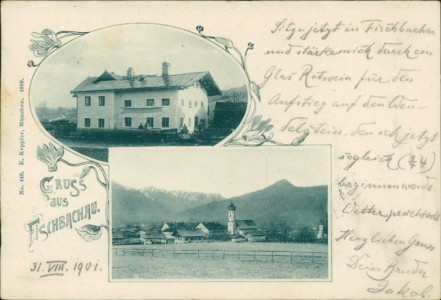 Sitze jetzt in Fischbachau
und stärke mich durch ein
Glas Rotwein für den
Aufstieg auf den Wen-
delstein, den ich jetzt
sogleich (3/4 4)
beginnen werde.
Wetter prachtvoll
Herzlichen Gruss
Dein Bruder
Jakob.
No. 449. E. Keppler, München. 1899.
GRUSS
AUS
FISCHBACHAU.
31. VIII. 1901.